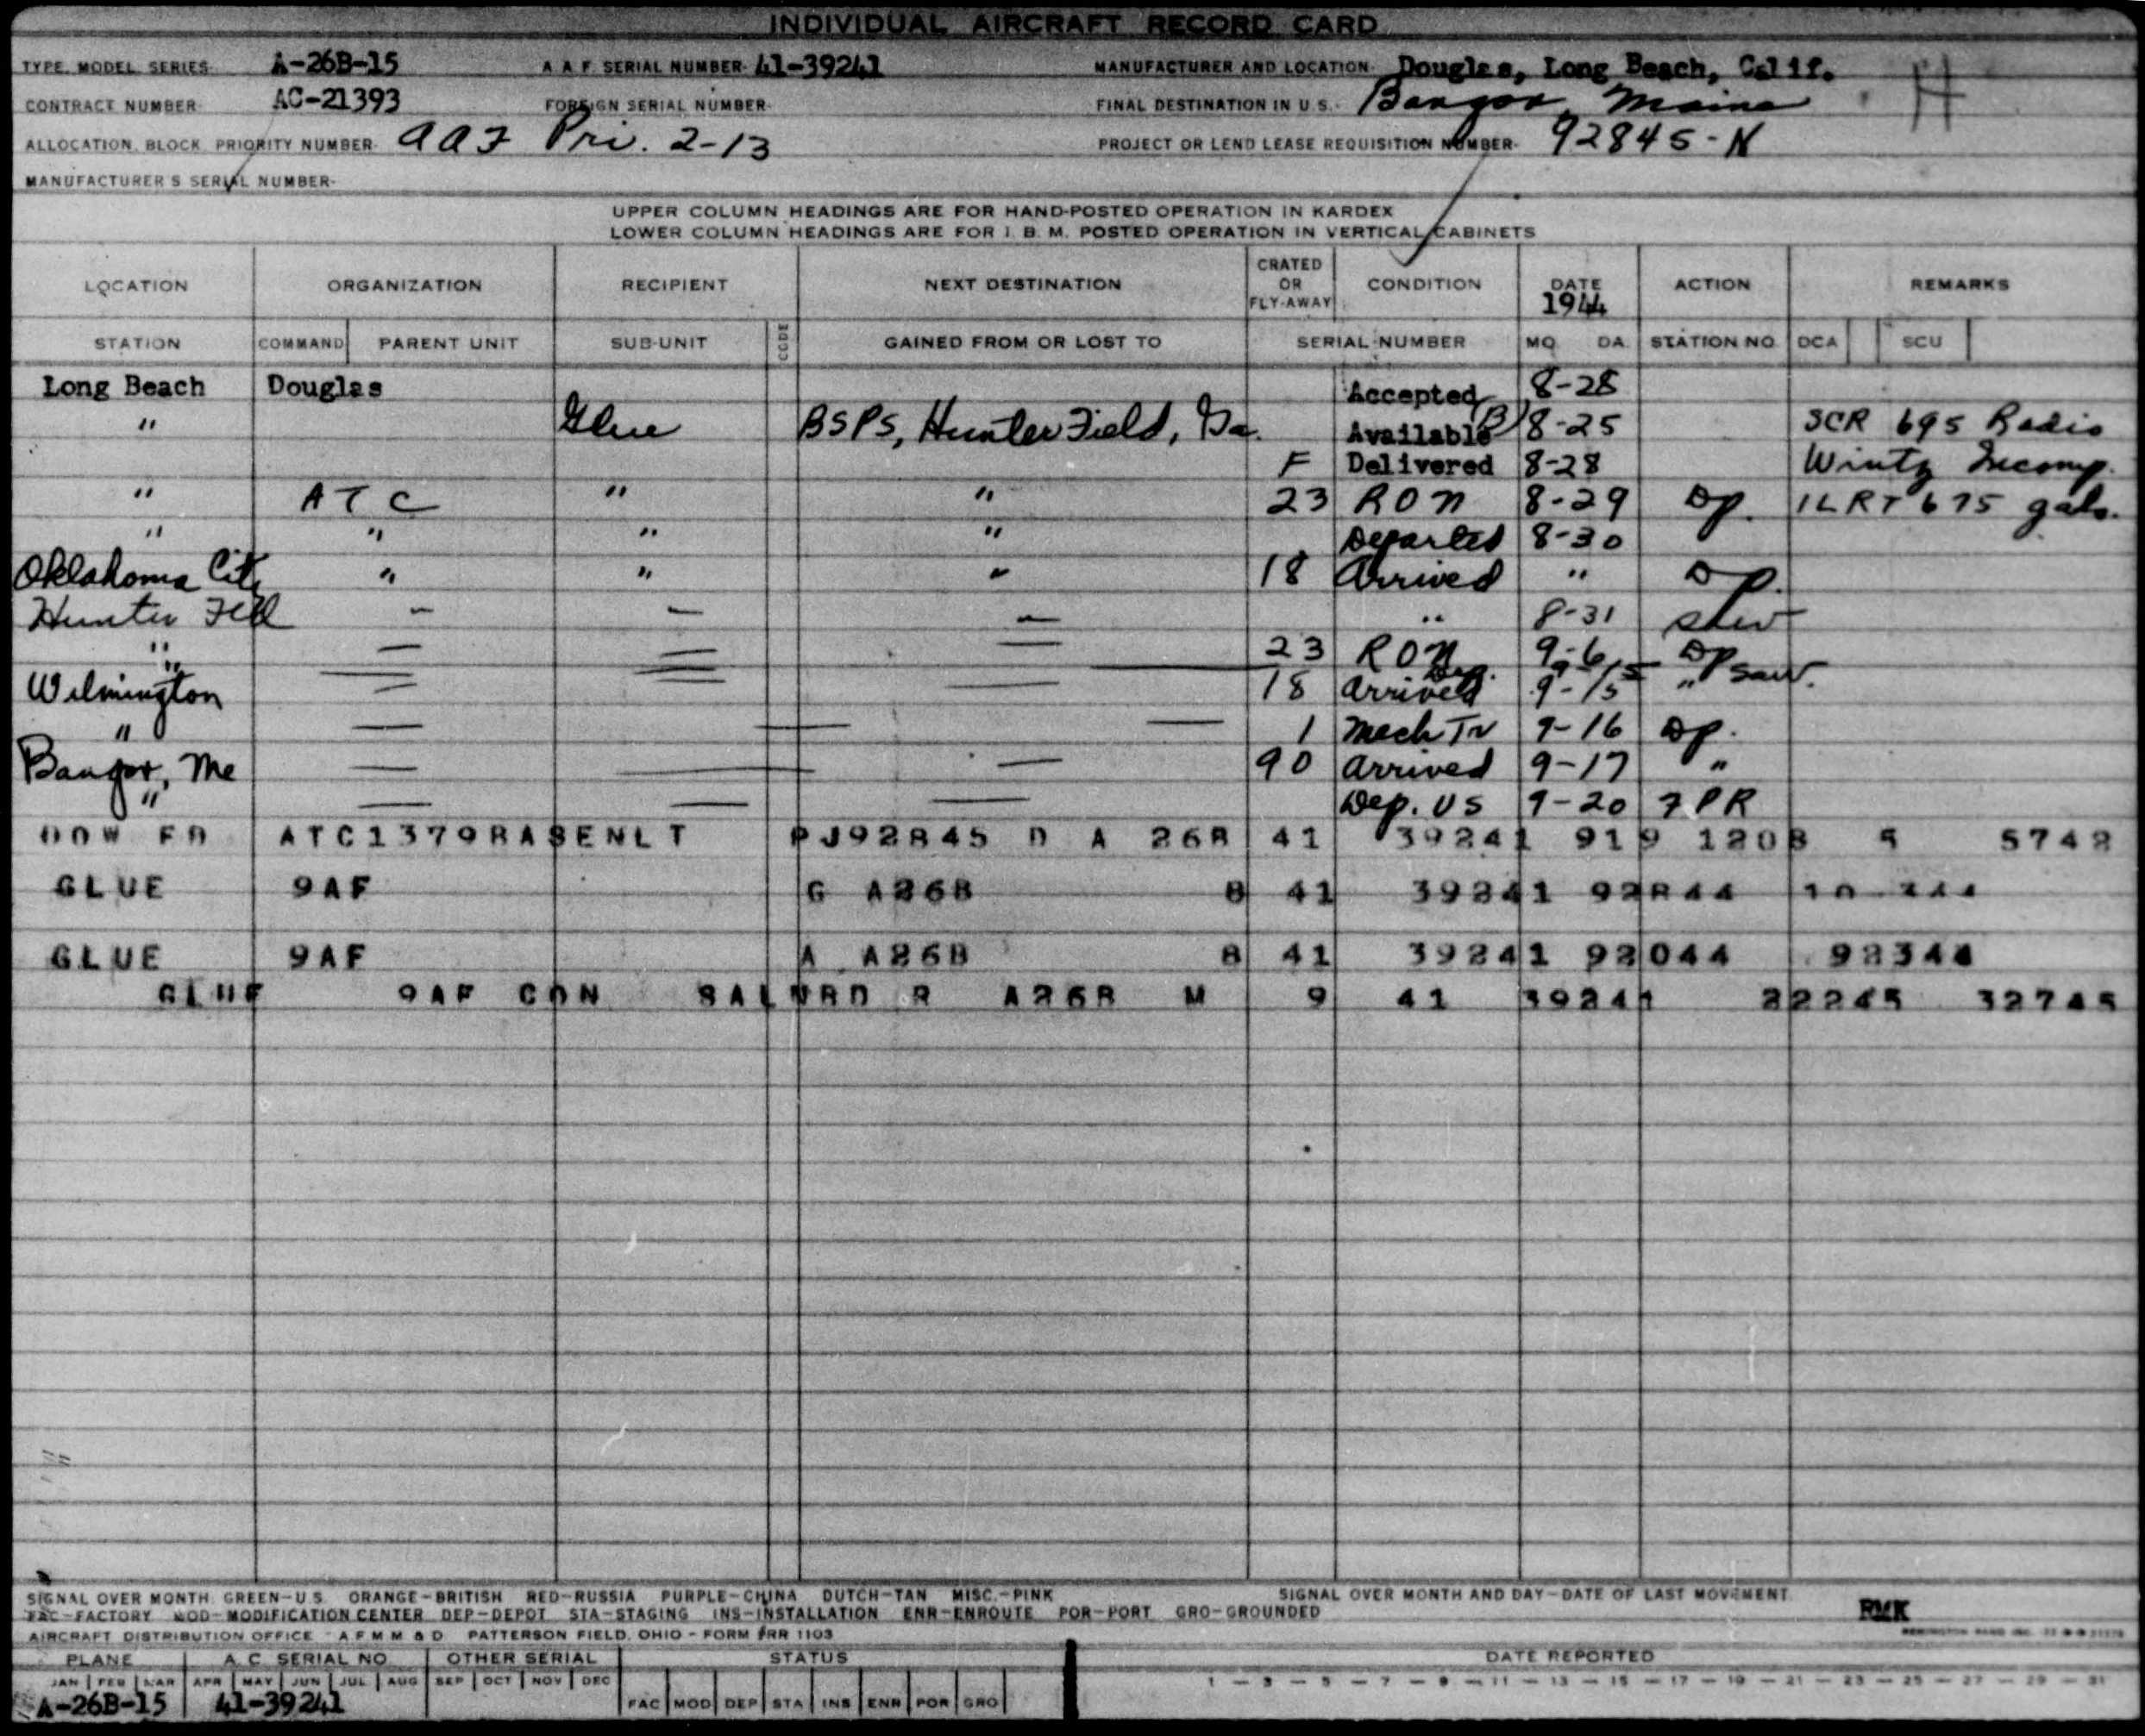 INDIVIDUAL AIRCRAFT RECORD CARD
TYPE, MODEL, SERIES- A-26B-15 A.A.F. SERIAL NUMBER- 41-39241 MANUFACTURER AND LOCATION- Douglas, Long Beach, Calif.
CONTRACT NUMBER- AC-21393 FOREIGN SERIAL NUMBER- FINAL DESTINATION IN U.S.- Bangor, Maine H
ALLOCATION, BLOCK, PRIORITY NUMBER- AAF Pri. 2-13 PROJECT OR LEND LEASE REQUISITION NUMBER- 92845-N
MANUFACTURER'S SERIAL NUMBER-
UPPER COLUMN HEADINGS ARE FOR HAND-POSTED OPERATION IN KARDEX
LOWER COLUMN HEADINGS ARE FOR I. B. M. POSTED OPERATION IN VERTICAL CABINETS
LOCATION ORGANIZATION RECIPIENT NEXT DESTINATION CRATED OR FLY-AWAY CONDITION DATE 1944 ACTION REMARKS
STATION COMMAND PARENT UNIT SUB-UNIT CODE GAINED FROM OR LOST TO SERIAL NUMBER MO. DA. STATION NO. DCA SCU
Long Beach Douglas Accepted 8-28
" Glue BSPS, Hunter Field, Ga. Available (B) 8-25 SCR 695 Radio
F Delivered 8-28 Wintz Incomp.
" ATC " " 23 RON 8-29 Dp. 1LRT 675 gals.
" " " " Departed 8-30
Oklahoma City " " " 18 Arrived " Dp.
Hunter Fld - - - " 8-31
" 23 RON 9-6 Dp
Dep. 9-15 saw.
Wilmington 18 Arrived 9-15 "
" 1 Mech Tr 9-16 Dp.
Bangor, Me 90 Arrived 9-17 "
" Dep. US 9-20 7PR
DOW FD ATC1379BASENLT PJ92845 D A 26B 41 39241 919 120B 5 5742
GLUE 9AF G A26B B 41 39241 92844
GLUE 9AF A A26B B 41 39241 92044 92344
GLUE 9AF CON SALNBD R A26B M 9 41 39241 22245 32745
SIGNAL OVER MONTH: GREEN-U.S. ORANGE-BRITISH RED-RUSSIA PURPLE-CHINA DUTCH-TAN MISC.-PINK SIGNAL OVER MONTH AND DAY-DATE OF LAST MOVEMENT
FAC-FACTORY MOD-MODIFICATION CENTER DEP-DEPOT STA-STAGING INS-INSTALLATION ENR-ENROUTE POR-PORT GRO-GROUNDED RMK
AIRCRAFT DISTRIBUTION OFFICE - A.F.M.M. & D. PATTERSON FIELD, OHIO - FORM #RR 1103
PLANE A.C. SERIAL NO. OTHER SERIAL STATUS DATE REPORTED
JAN FEB MAR APR MAY JUN JUL AUG SEP OCT NOV DEC 1 - 3 - 5 - 7 - 9 - 11 - 13 - 15 - 17 - 19 - 21 - 23 - 25 - 27 - 29 - 31
A-26B-15 41-39241 FAC MOD DEP STA INS ENR POR GRO